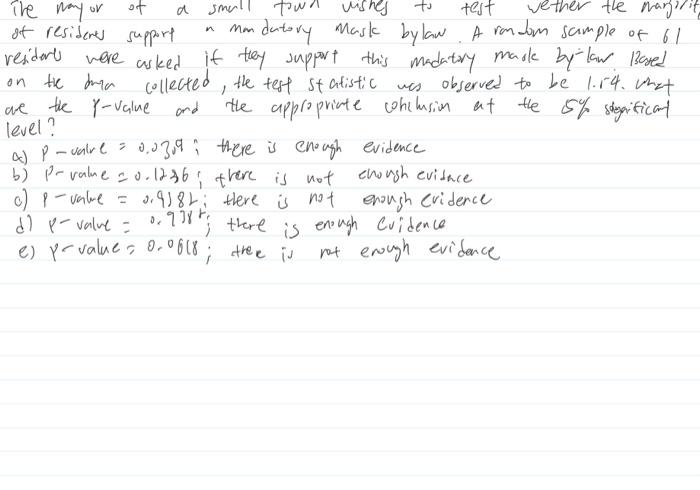 The mayor of a small town wishes to test wether the margirit
of residens support a mandatory mask bylaw. A random sample of 61
residents were asked if they support this madatory mask by-law Based
on the data collected, the test statistic was observed to be 1.54. what
are the P-value and the appropriate conclusion at the 5% significant
level?
a) P-value = 0.0309; there is enough evidence
b) P-value = 0.1236; there is not enough evidence
c) P-value = 0.9382; there is not enough evidence
d) P-value = 0.9382; there is enough evidence
e) P-value = 0.0618; there is not enough evidence